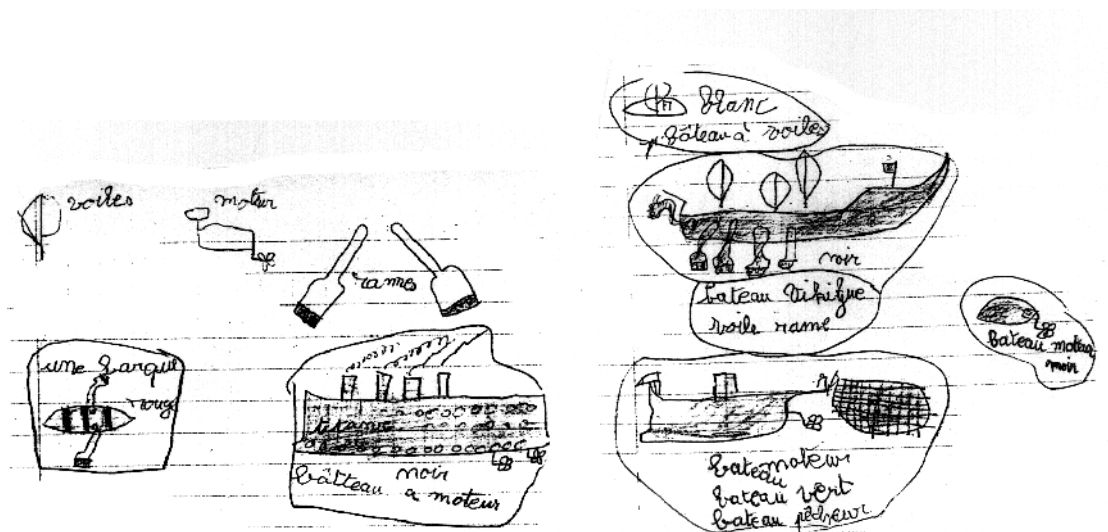 voiles
moteur
rames
une barque
rouge
titanic
noir
bâtteau a moteur
blanc
bâteau à voiles
noir
bateau vikifue
voile rame
bateau moteur
noir
bateau moteur
bateau
bateau vert
bateau pêcheur